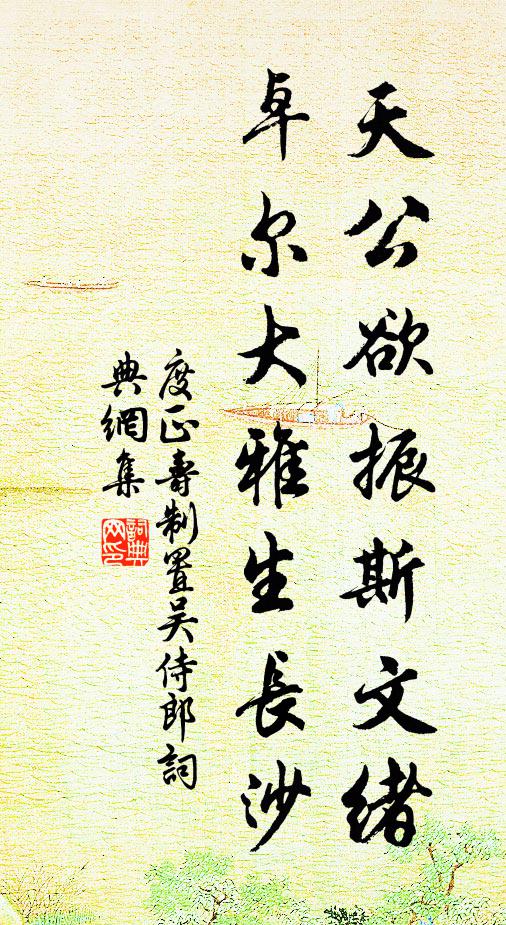 天公欲振斯文緒
卓尔大雅生長沙
度正壽制置吴侍郎詞
典網集
詞典网印